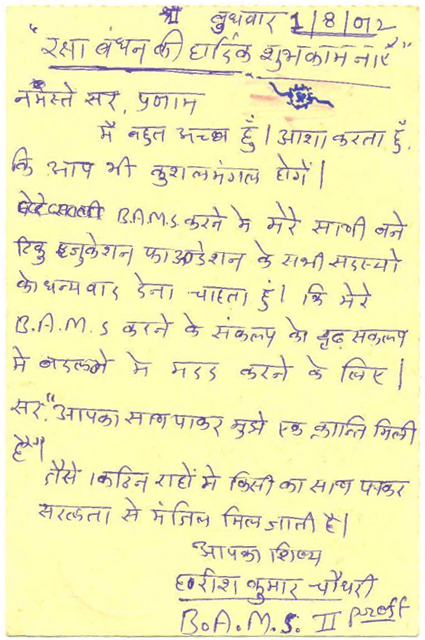 श्री बुधवार 1/8/012
"रक्षा बंधन की हार्दिक शुभकामनाएँ"
नमस्ते सर, प्रणाम
मैं बहुत अच्छा हुँ। आशा करता हुँ,
कि आप भी कुशलमंगल होगें।
B.A.M.S करने मे मेरे साथी बने
टिकु एजुकेशन फाउंडेशन के सभी सदस्यो
को धन्यवाद देना चाहता हुं। कि मेरे
B.A.M.S करने के संकल्प को दृढ़ सकल्प
मे बदलने मे मदद करने के लिए।
सर, "आपका साथ पाकर मुझे एक क्रान्ति मिली
है"।
जैसे। कठिन राहों मे किसी का साथ पाकर
सरलता से मंजिल मिल जाती है।
आपका शिष्य
हरीश कुमार चौधरी
B.A.M.S. II proff